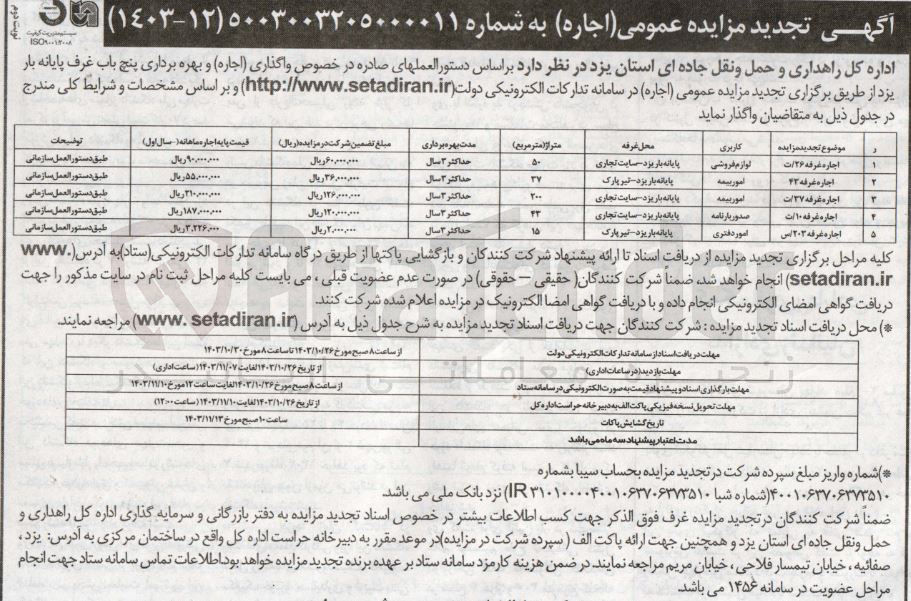 آگهـــی تجدید مزایده عمومی(اجاره) به شماره ۵۰۰۳۰۰۳۲۰۵۰۰۰۰۰۱۱ (۱۲-۱۴۰۳)
نوبت دوم
سیستم مدیریت کیفیت
ISO9001:2008
اداره کل راهداری و حمل ونقل جاده ای استان یزد در نظر دارد براساس دستورالعملهای صادره در خصوص واگذاری (اجاره) و بهره برداری پنج باب غرف پایانه بار
یزد از طریق برگزاری تجدید مزایده عمومی (اجاره) در سامانه تدارکات الکترونیکی دولت(http://www.setadiran.ir) و بر اساس مشخصات و شرایط کلی مندرج
در جدول ذیل به متقاضیان واگذار نماید
ر موضوع تجدید مزایده کاربری محل غرفه متراژ(مترمربع) مدت بهره برداری مبلغ تضمین شرکت در مزایده(ریال) قیمت پایه اجاره ماهانه(-سال اول) توضیحات
۱ اجاره غرفه ۲۶/ت لوازم فروشی پایانه بار یزد-سایت تجاری ۵۰ حداکثر ۳ سال ۶۰,۰۰۰,۰۰۰ریال ۹۰,۰۰۰,۰۰۰ریال طبق دستورالعمل سازمانی
۲ اجاره غرفه ۴۳ امور بیمه پایانه بار یزد-تیرپارک ۳۷ حداکثر ۳ سال ۳۶,۰۰۰,۰۰۰ریال ۵۵,۰۰۰,۰۰۰ریال طبق دستورالعمل سازمانی
۳ اجاره غرفه ۳۷/ت امور بیمه پایانه بار یزد-سایت تجاری ۲۰۰ حداکثر ۳ سال ۱۲۶,۰۰۰,۰۰۰ریال ۲۱۰,۰۰۰,۰۰۰ریال طبق دستورالعمل سازمانی
۴ اجاره غرفه ۱۰/ت صدور بارنامه پایانه بار یزد-سایت تجاری ۴۳ حداکثر ۳ سال ۱۲۰,۰۰۰,۰۰۰ریال ۱۸۷,۰۰۰,۰۰۰ریال طبق دستورالعمل سازمانی
۵ اجاره غرفه ۲۰۳/س امور دفتری پایانه بار یزد-تیرپارک ۱۵ حداکثر ۳ سال ۲,۰۰۰,۰۰۰ریال ۳,۲۲۶,۰۰۰ریال طبق دستورالعمل سازمانی
کلیه مراحل برگزاری تجدید مزایده از دریافت اسناد تا ارائه پیشنهاد شرکت کنندگان و بازگشایی پاکتها از طریق درگاه سامانه تدارکات الکترونیکی(ستاد)به آدرس(www.
setadiran.ir) انجام خواهد شد، ضمناً شرکت کنندگان( حقیقی – حقوقی) در صورت عدم عضویت قبلی ، می بایست کلیه مراحل ثبت نام در سایت مذکور را جهت
دریافت گواهی امضای الکترونیکی انجام داده و با دریافت گواهی امضا الکترونیک در مزایده اعلام شده شرکت کنند.
*) محل دریافت اسناد تجدید مزایده : شرکت کنندگان جهت دریافت اسناد تجدید مزایده به شرح جدول ذیل به آدرس (www. setadiran.ir) مراجعه نمایند.
مهلت دریافت اسناد از سامانه تدارکات الکترونیکی دولت از ساعت ۸ صبح مورخ ۱۴۰۳/۱۰/۲۶ تا ساعت ۸ مورخ ۱۴۰۳/۱۰/۳۰
مهلت بازدید(در ساعات اداری) از تاریخ ۱۴۰۳/۱۰/۲۶ لغایت ۱۴۰۳/۱۱/۰۷ (ساعت اداری)
مهلت بارگذاری اسناد و پیشنهاد قیمت به صورت الکترونیکی در سامانه ستاد از ساعت ۸ صبح مورخ ۱۴۰۳/۱۰/۲۶ لغایت ساعت ۱۲ مورخ ۱۴۰۳/۱۱/۱۰
مهلت تحویل نسخه فیزیکی پاکت الف به دبیرخانه حراست اداره کل از تاریخ ۱۴۰۳/۱۰/۲۶ لغایت ۱۴۰۳/۱۱/۱۰ (ساعت ۱۲:۰۰)
تاریخ گشایش پاکات ساعت ۱۰ صبح مورخ ۱۴۰۳/۱۱/۱۳
مدت اعتبار پیشنهاد سه ماه می باشد
*)شماره واریز مبلغ سپرده شرکت در تجدید مزایده بحساب سیبا بشماره
۴۰۰۱۰۶۳۷۰۶۳۷۳۵۱۰(شماره شبا IR ۳۱۰۱۰۰۰۰۴۰۰۱۰۶۳۷۰۶۳۷۳۵۱۰) نزد بانک ملی می باشد.
ضمناً شرکت کنندگان در تجدید مزایده غرف فوق الذکر جهت کسب اطلاعات بیشتر در خصوص اسناد تجدید مزایده به دفتر بازرگانی و سرمایه گذاری اداره کل راهداری و
حمل ونقل جاده ای استان یزد و همچنین جهت ارائه پاکت الف ( سپرده شرکت در مزایده)در موعد مقرر به دبیرخانه حراست اداره کل واقع در ساختمان مرکزی به آدرس: یزد ،
صفائیه ، خیابان تیمسار فلاحی ، خیابان مریم مراجعه نمایند. در ضمن هزینه کارمزد سامانه ستاد بر عهده برنده تجدید مزایده خواهد بود.اطلاعات تماس سامانه ستاد جهت انجام
مراحل عضویت در سامانه ۱۴۵۶ می باشد.